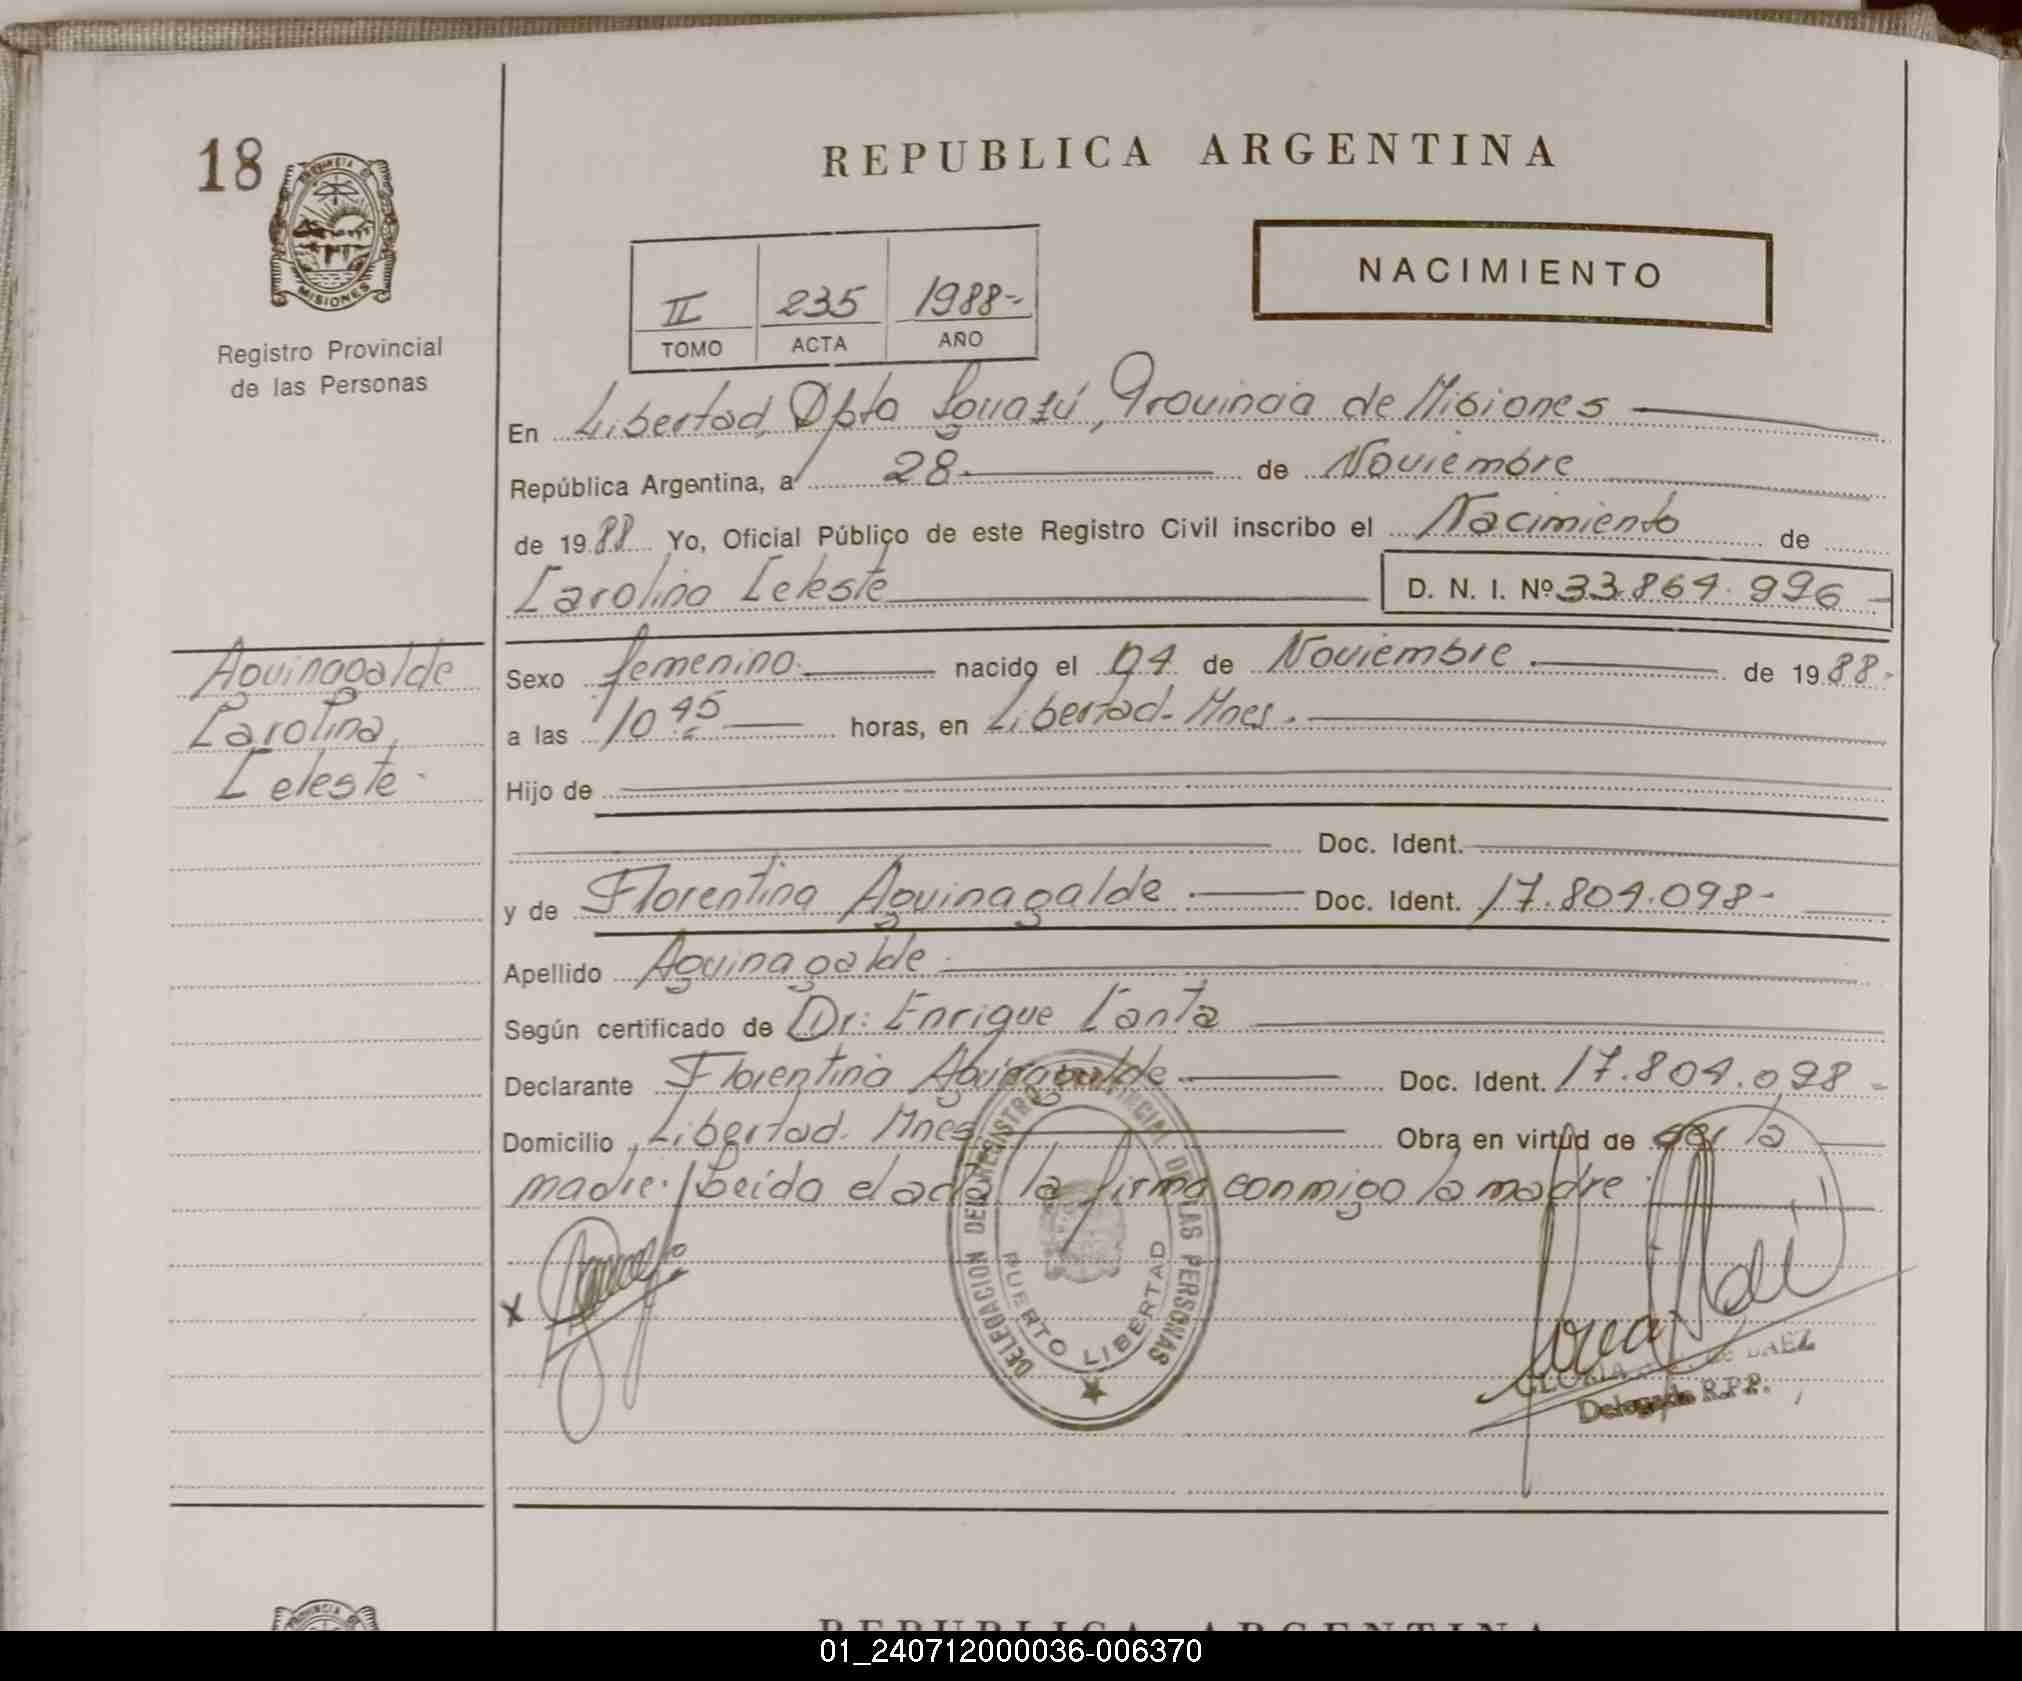 18
PROVINCIA DE
MISIONES
Registro Provincial
de las Personas
REPUBLICA ARGENTINA
NACIMIENTO
II 235 1988-
TOMO ACTA AÑO
En Libertad, Dpto Iguazú, Provincia de Misiones
República Argentina, a 28 de Noviembre
de 1988 Yo, Oficial Público de este Registro Civil inscribo el Nacimiento de
Carolina Celeste D. N. I. Nº 33.864.996
Aguinagalde
Carolina
Celeste
Sexo femenino nacido el 04 de Noviembre de 1988-
a las 10 45 horas, en Libertad- Mnes.
Hijo de
Doc. Ident.
y de Florentina Aguinagalde Doc. Ident. 17.804.098-
Apellido Aguinagalde
Según certificado de Dr: Enrique Canta
Declarante Florentina Aguinagalde Doc. Ident. 17.804.098-
Domicilio Libertad. Mnes Obra en virtud de ser la
madre. Leída el acta la firma conmigo la madre.
X
DELEGACION DEL REGISTRO PROVINCIAL DE LAS PERSONAS
PUERTO LIBERTAD
GLORIA DE BAEZ
Delegada R.P.P.
REPUBLICA ARGENTINA
01_240712000036-006370